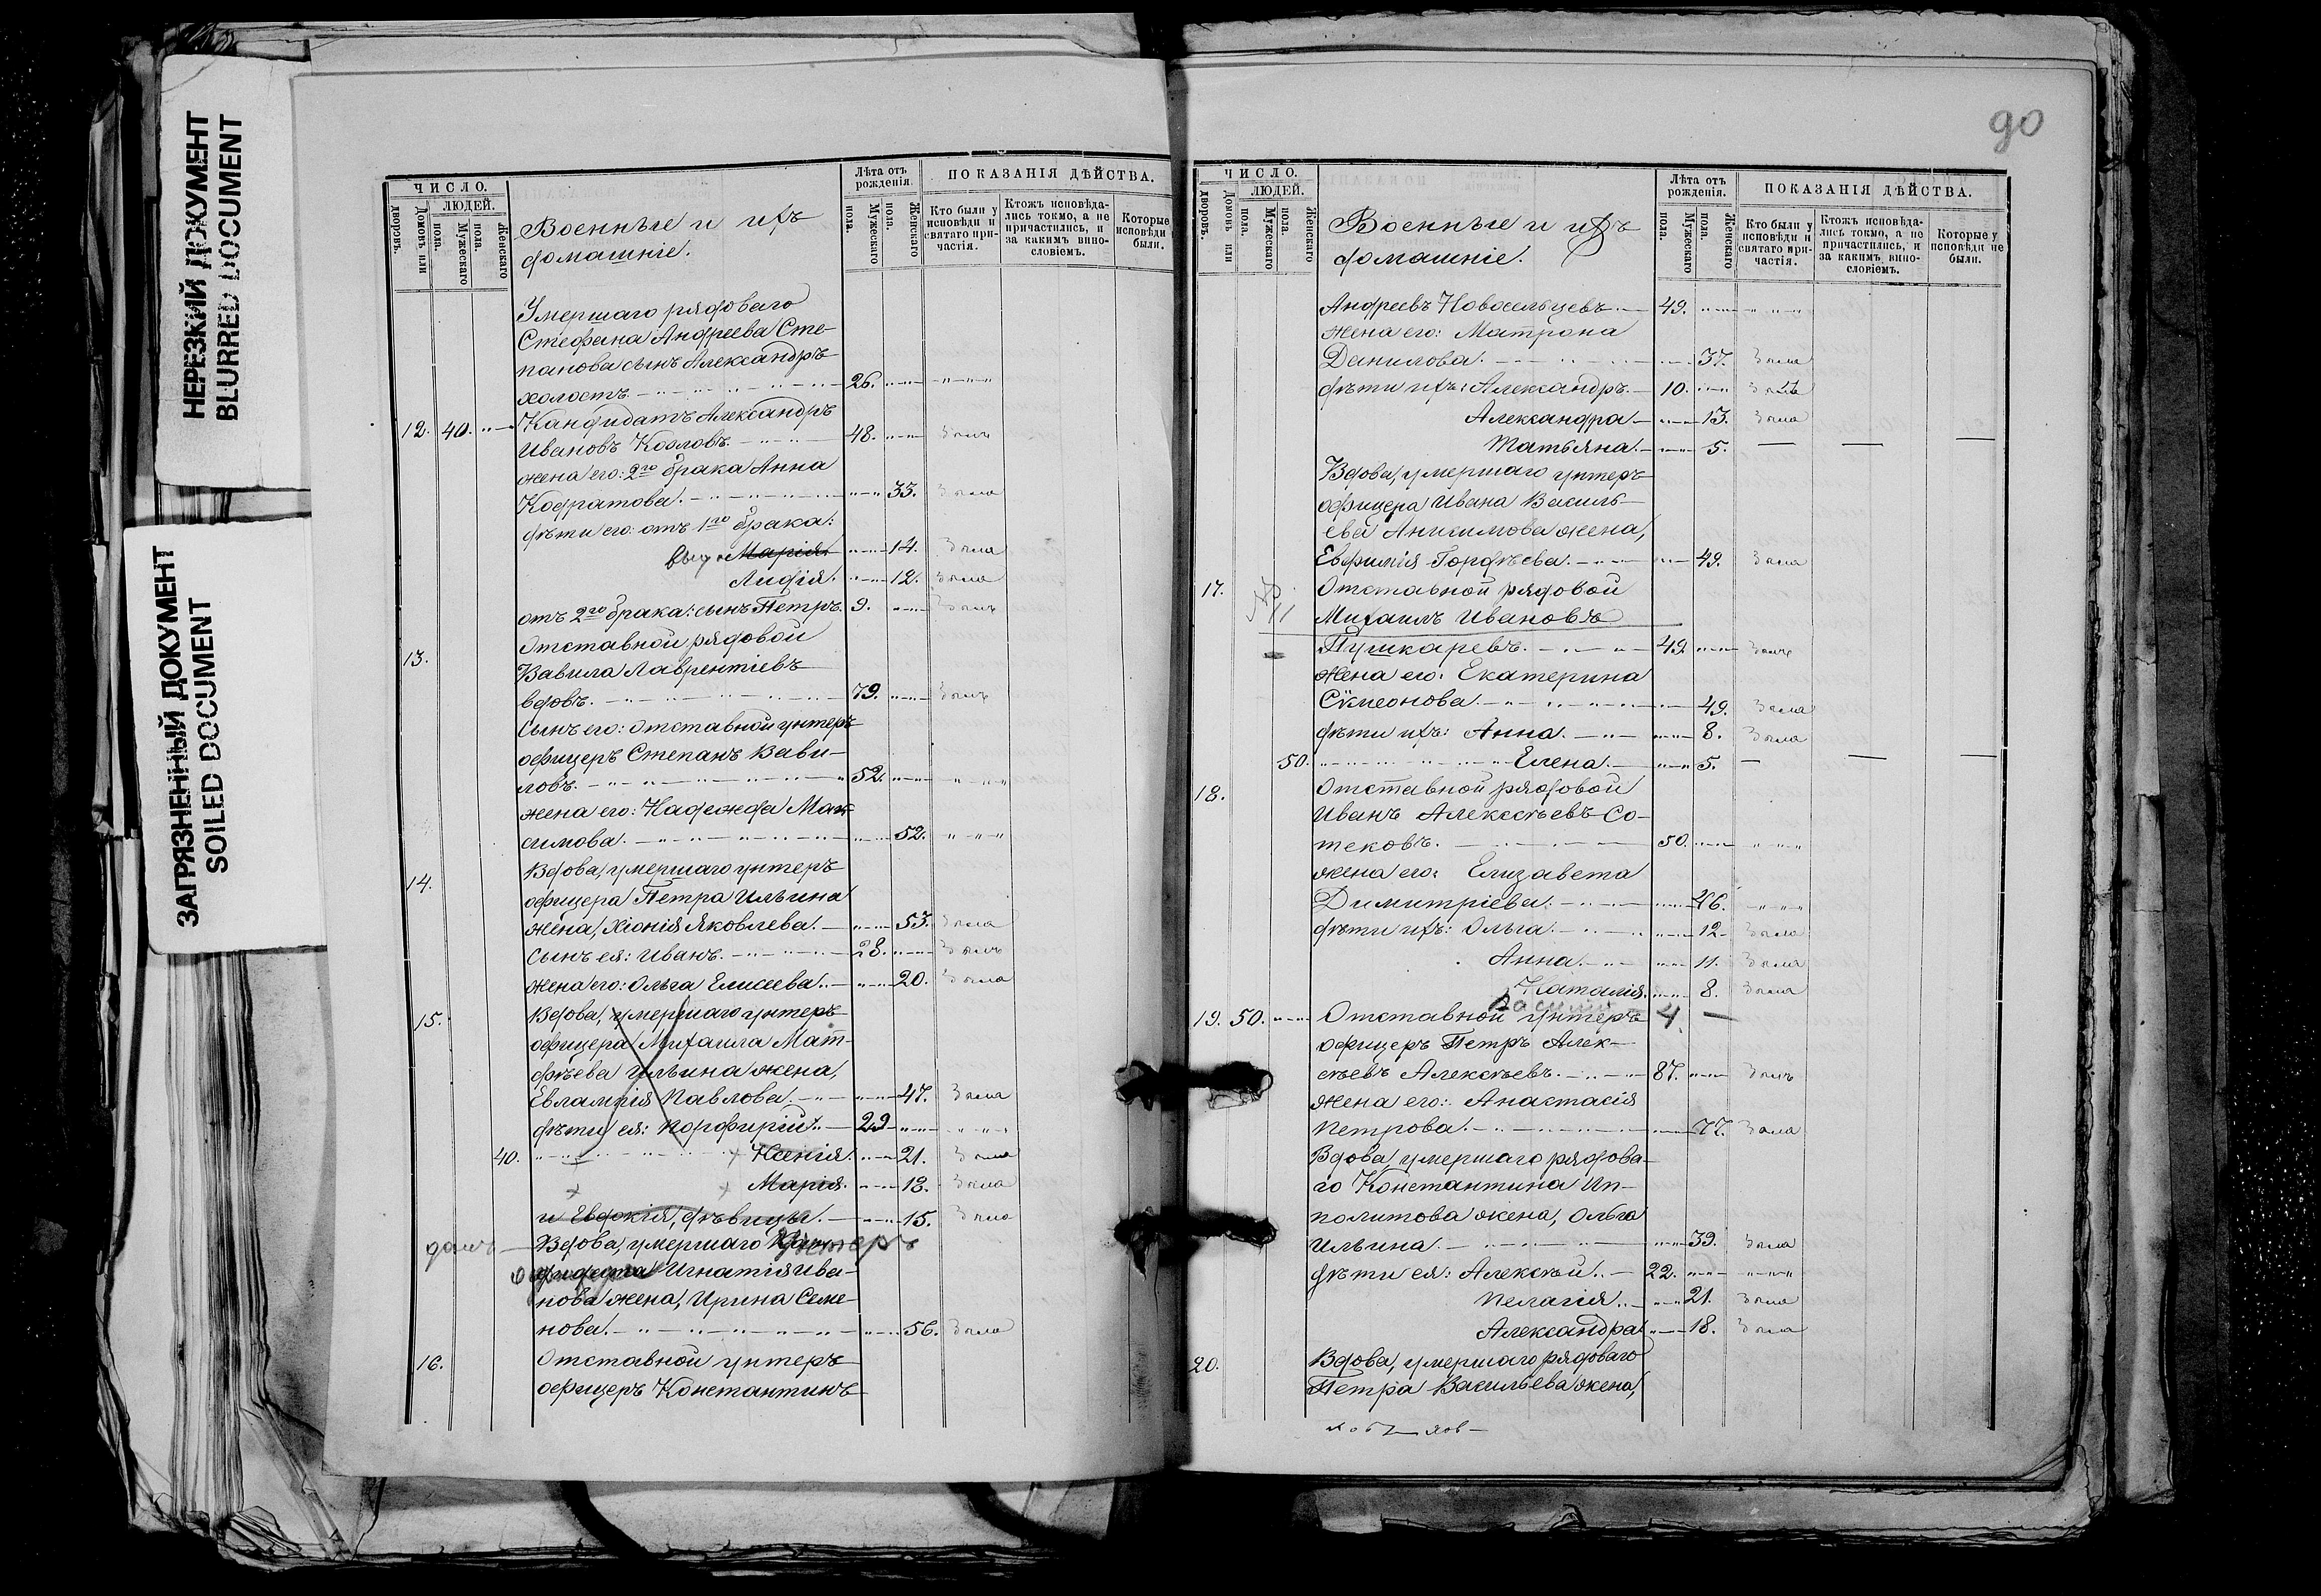 НЕРЕЗКИЙ ДОКУМЕНТ
BLURRED DOCUMENT
ЗАГРЯЗНЕННЫЙ ДОКУМЕНТ
SOILED DOCUMENT
ЧИСЛО.
ЛЮДЕЙ.
Дворовъ.
Домовъ или
Мужескаго пола.
Женскаго пола.
Военные и ихъ
домашніе.
Лѣта отъ рожденія.
Мужескаго пола.
Женскаго пола.
ПОКАЗАНІЯ ДѢЙСТВА.
Кто были у исповѣди и святаго причастія.
Ктожъ исповѣдались токмо, а не причастились, и за какимъ винословіемъ.
Которые исповѣди были.
Умершаго рядоваго
Стефана Андреева Сте-
панова сынъ Александръ
холостъ. 26.
12. 40. Кандидатъ Александръ
Ивановъ Козловъ. 48. былъ
жена его: 2го брака Анна
Кодратова. 33. была
дѣти его: отъ 1го брака:
Марія. 14. была
Лидія. 12. была
отъ 2го брака: сынъ Петръ. 9. былъ
13. Отставной рядовой
Вавила Лаврентіевъ
вдовъ. 79. былъ
Сынъ его: отставной унтеръ
офицеръ Степанъ Вави-
ловъ. 52.
жена его: Надежда Мак-
симова. 52.
14. Вдова, умершаго унтеръ
офицера Петра Ильина
жена, Хіонія Яковлева. 53. была
сынъ ея: Иванъ. 28. былъ
жена его: Ольга Елисеева. 20. была
15. Вдова, умершаго унтеръ
офицера Михаила Мат-
фѣева Ильина жена,
Евлампія Павлова. 47. была
дѣти ея: Порфирій. 29
40. Ксенія. 21. была
Марія. 18. была
и Евдокія, дѣвицы. 15. была
Вдова, умершаго Кан- унтеръ
дидата Игнатія Ива-
нова жена, Ирина Семе-
нова. 56. была
16. Отставной унтеръ
офицеръ Константинъ
90
ЧИСЛО.
ЛЮДЕЙ.
Дворовъ.
Домовъ или
Мужескаго пола.
Женскаго пола.
Военные и ихъ
домашніе.
Лѣта отъ рожденія.
Мужескаго пола.
Женскаго пола.
ПОКАЗАНІЯ ДѢЙСТВА.
Кто были у исповѣди и святаго причастія.
Ктожъ исповѣдались токмо, а не причастились, и за какимъ винословіемъ.
Которые у исповѣди не были.
Андреевъ Новосельцевъ. 49.
жена его: Матрона
Данилова. 37. была
дѣти ихъ: Александръ. 10. былъ
Александра 13. была
Татьяна. 5.
Вдова, умершаго унтеръ
офицера Ивана Василь-
ева Анисимова жена,
Евфимія Гордѣева. 49. была
17. Отставной рядовой
Михаилъ Ивановъ
Пушкаревъ. 49. былъ
жена его: Екатерина
Симеонова. 49. была
дѣти ихъ: Анна. 8. была
50. Елена. 5.
18. Отставной рядовой
Иванъ Алексѣевъ Со-
тековъ. 50.
жена его: Елизавета
Димитріева. 46.
дѣти ихъ: Ольга. 12 была
Анна. 11. была
Наталія. 8. была
Василій 4
19. 50. Отставной унтеръ
офицеръ Петръ Алек-
сѣевъ Алексѣевъ. 87. былъ
жена его: Анастасія
Петрова. 77. была
Вдова, умершаго рядова-
го Константина Ип-
политова жена, Ольга
Ильина. 39. была
дѣти ея: Алексѣй. 22.
Пелагія. 21. была
Александра 18. была
20. Вдова, умершаго рядоваго
Петра Васильева жена,